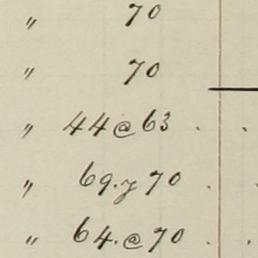 " 70
" 70
" 44@63 . .
" 69.y 70 .
" 64.@70 . .